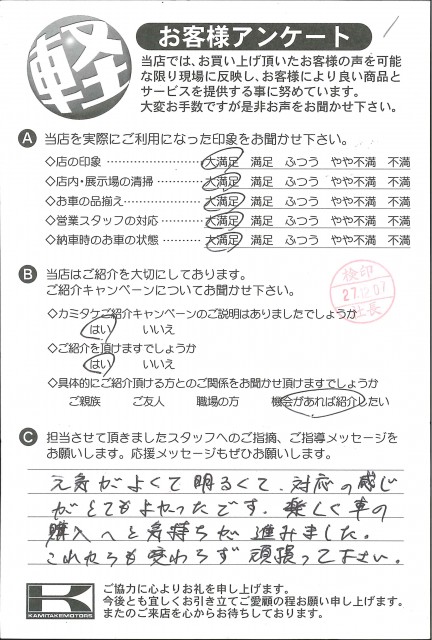 軽
お客様アンケート
当店では、お買い上げ頂いたお客様の声を可能
な限り現場に反映し、お客様により良い商品と
サービスを提供する事に努めています。
大変お手数ですが是非お声をお聞かせ下さい。
A 当店を実際にご利用になった印象をお聞かせ下さい。
◇店の印象 ……………… 大満足 満足 ふつう やや不満 不満
◇店内・展示場の清掃 ……… 大満足 満足 ふつう やや不満 不満
◇お車の品揃え …………… 大満足 満足 ふつう やや不満 不満
◇営業スタッフの対応 ……… 大満足 満足 ふつう やや不満 不満
◇納車時のお車の状態 ……… 大満足 満足 ふつう やや不満 不満
B 当店はご紹介を大切にしてあります。
ご紹介キャンペーンについてお聞かせ下さい。
検印
27.12.07
社長
◇カミタケご紹介キャンペーンのご説明はありましたでしょうか
はい いいえ
◇ご紹介を頂けますでしょうか
はい いいえ
◇具体的にご紹介頂ける方とのご関係をお聞かせ頂けますでしょうか
ご親族 ご友人 職場の方 機会があれば紹介したい
C 担当させて頂きましたスタッフへのご指摘、ご指導メッセージを
お願いします。応援メッセージもぜひお願いします。
元気がよくて明るくて、対応の感じ
がとてもよかったです。楽しく車の
購入へと気持ちが進みました。
これからも変わらず頑張って下さい。
K
KAMITAKEMOTORS
ご協力に心よりお礼を申し上げます。
今後とも宜しくお引き立てご愛顧の程お願い申し上げます。
またのご来店を心からお待ちしております。